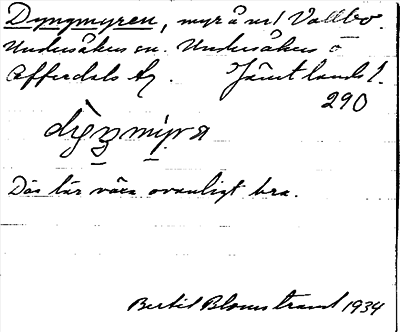 Dyngmyren, myr å nr 1 Vallbo.
Undersåkers sn. Undersåkers o
Offerdals tg. Jämtlands l.
290
dyŋmyra
Där lär våra ovanligt bra.
Bertil Blomstrand 1934